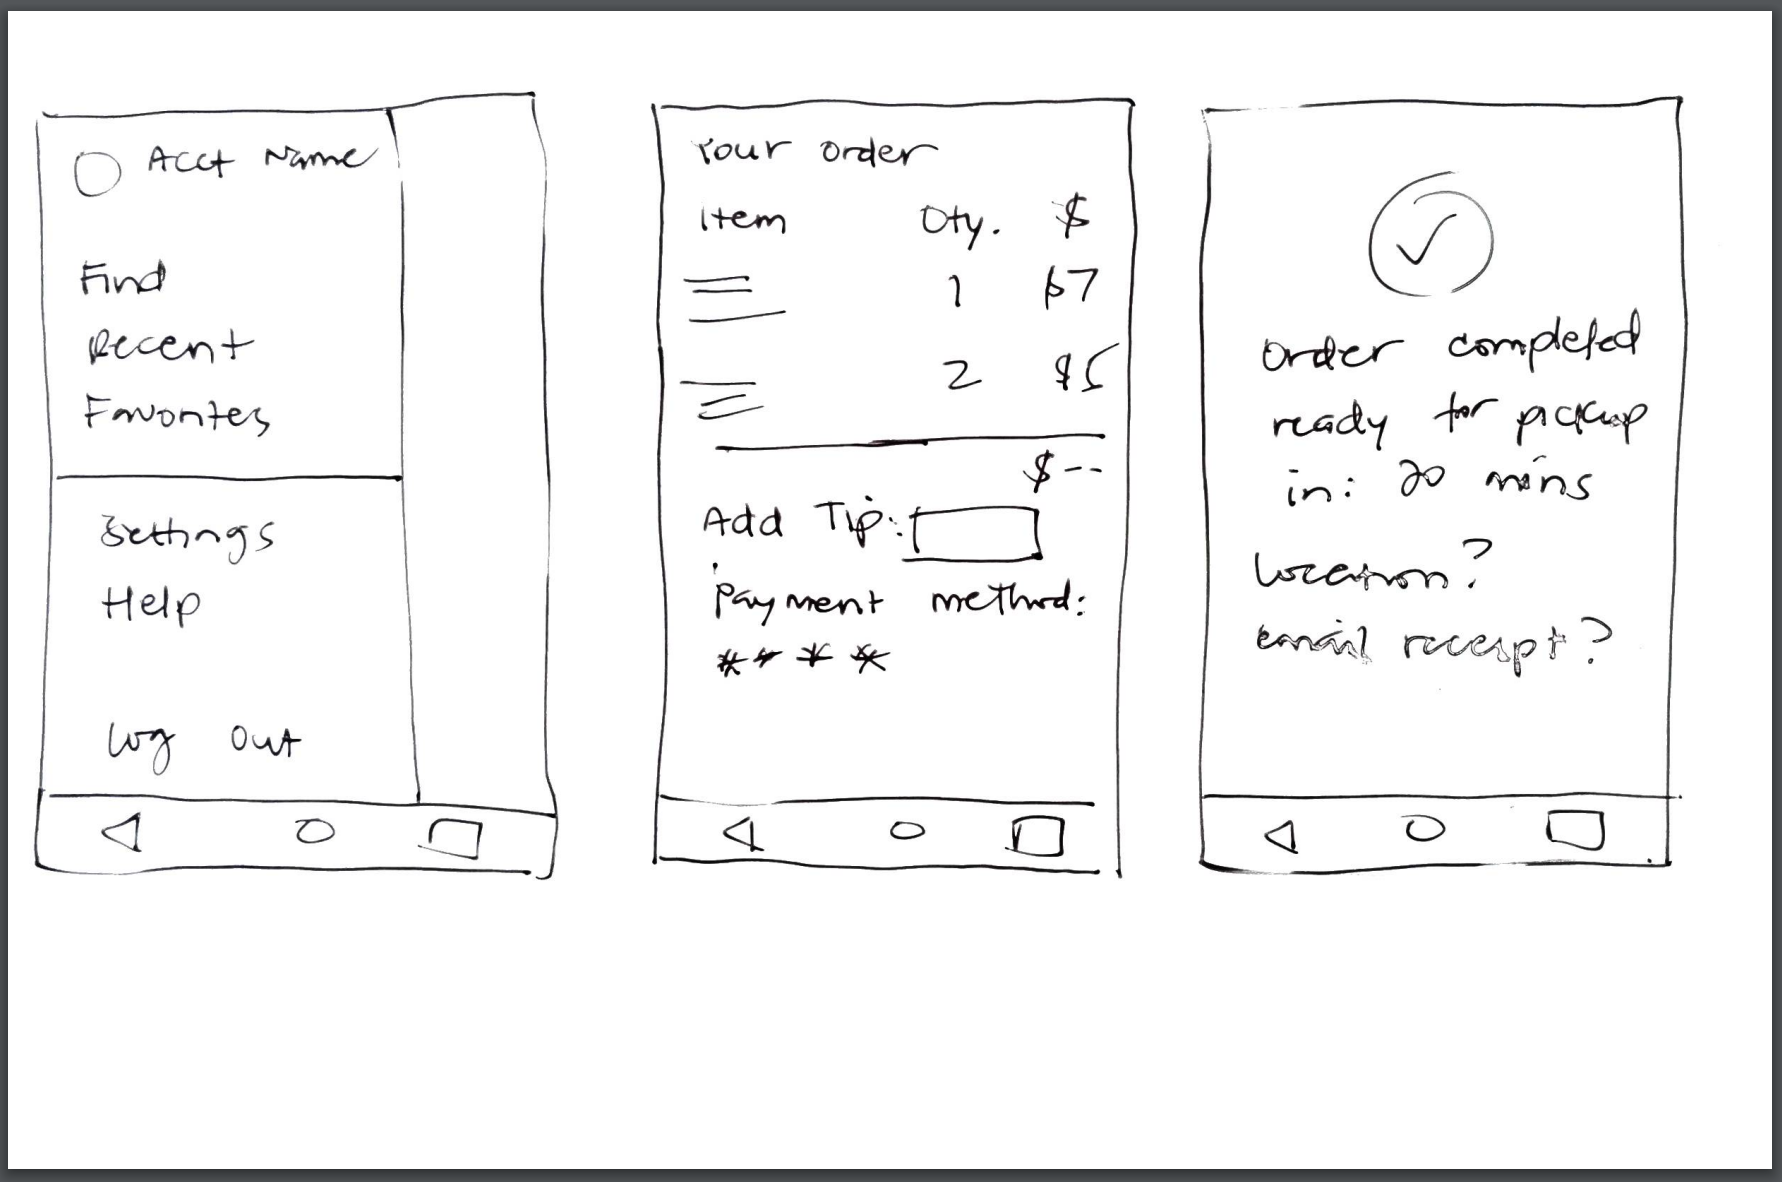 Acct Name
Find
Recent
Favorites
Settings
Help
Log Out
Your order
Item Qty. $
1 $7
2 $5
$--
Add Tip:
Payment method:
****
Order completed
ready for pickup
in: 20 mins
Location?
email receipt?